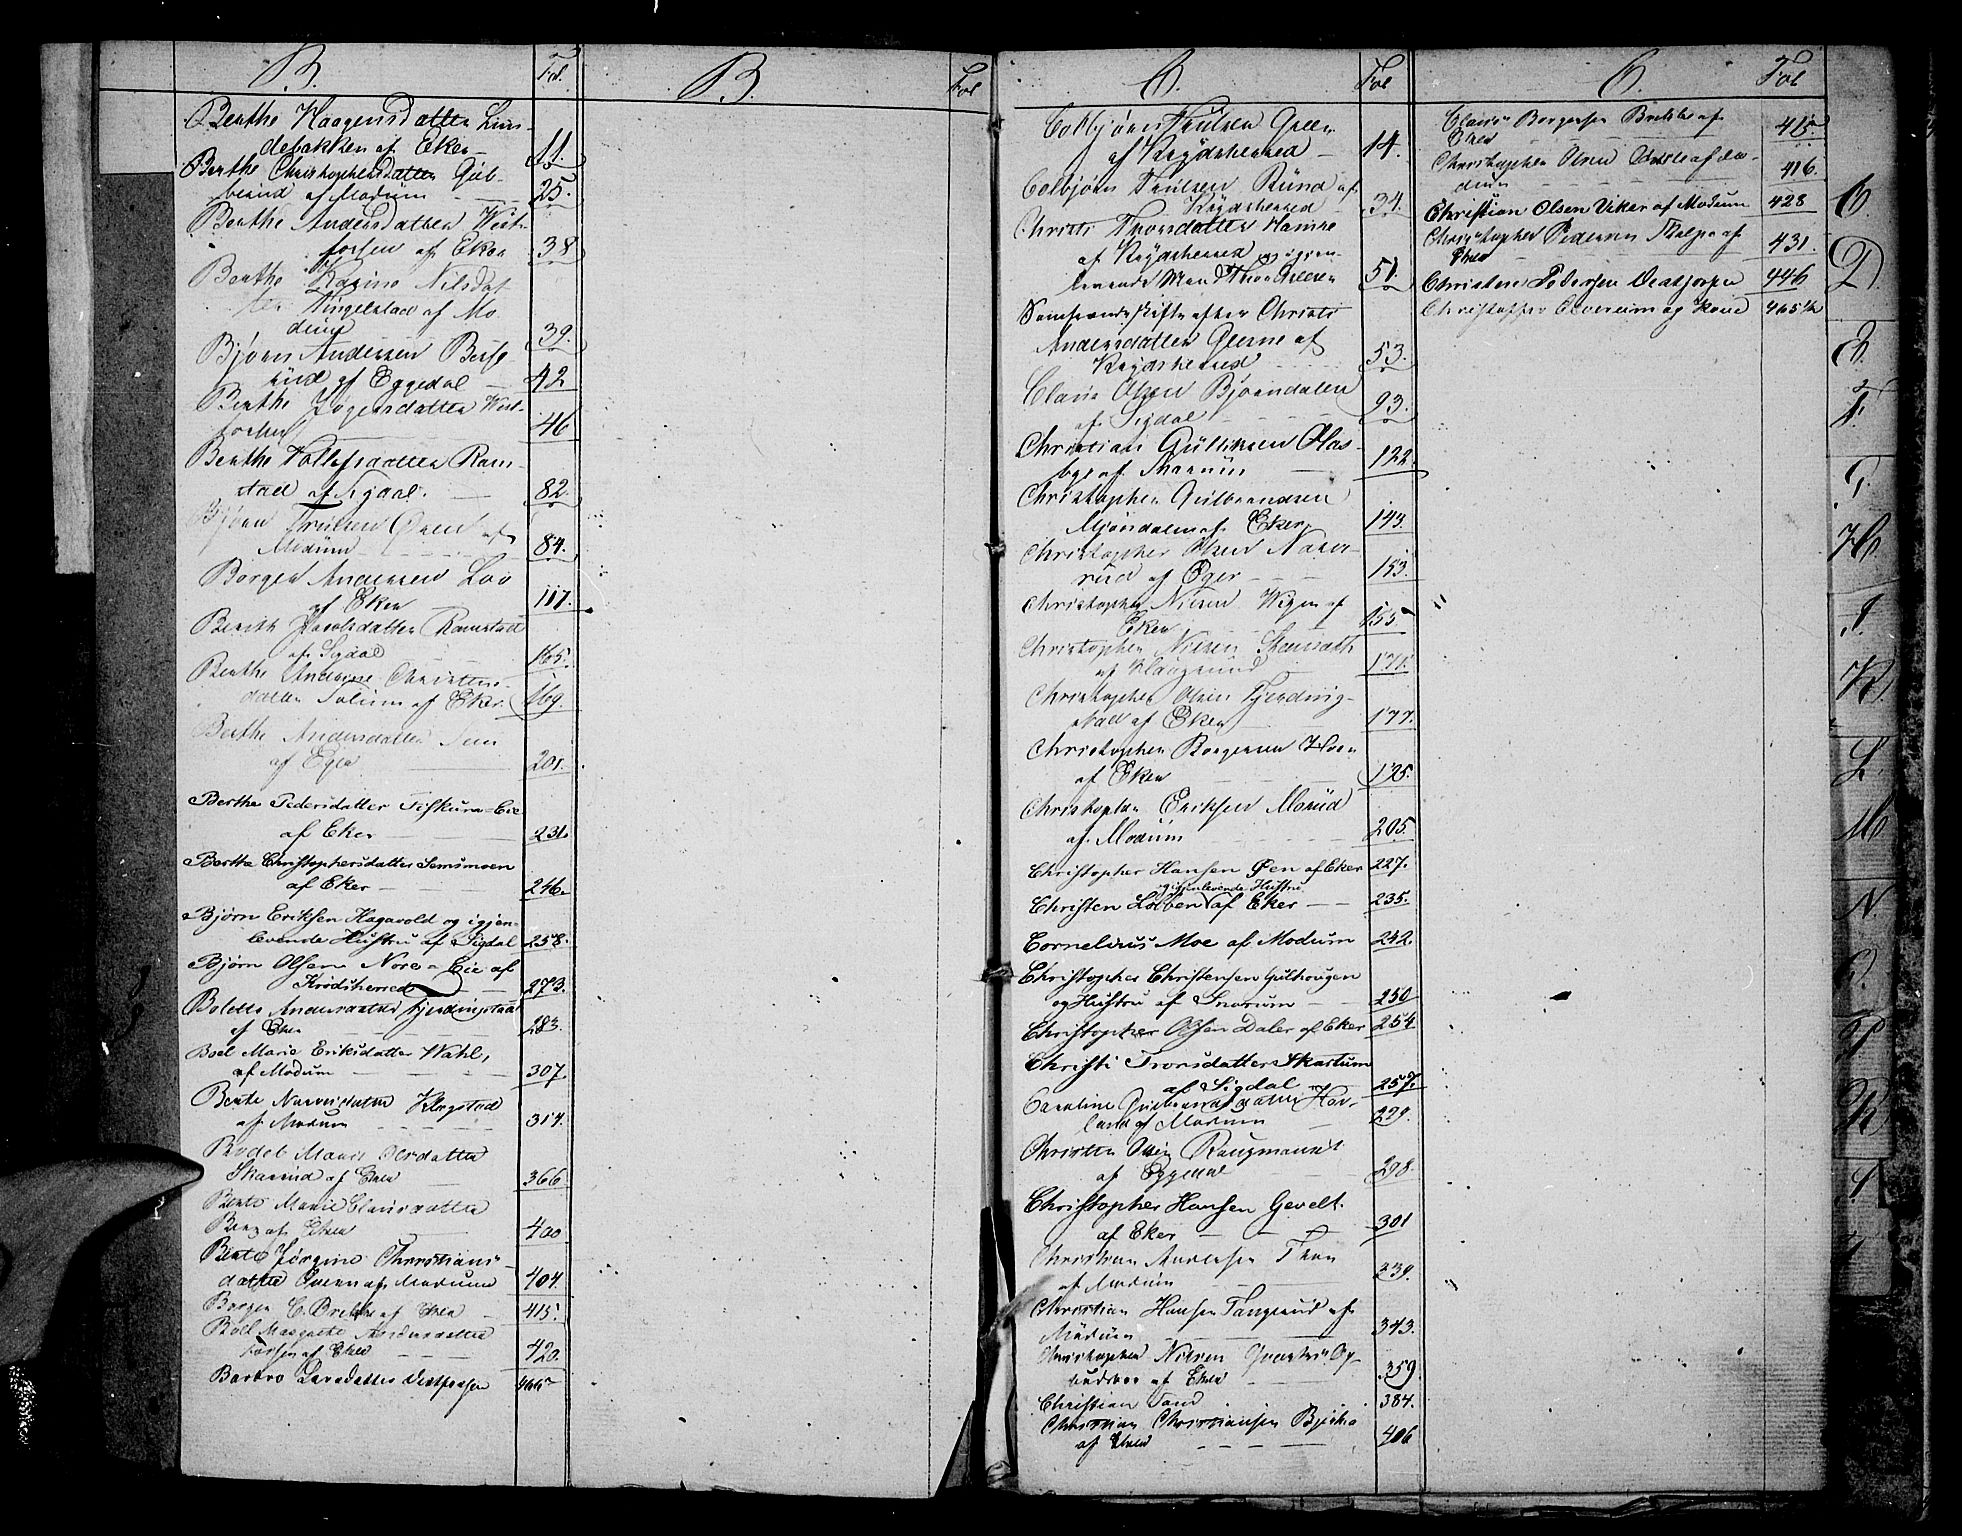 B.
Fol.
Berthe Haagensdatter Lin-
debakken af Eker 11.
Berthe Christophersdatter Gub-
berud af Modum 25.
Berthe Andersdatter West-
forsen af Eker 38
Berthe Karine Nilsdat
ter Tingelstad af Mo
dum 39.
Bjørn Andersen Berse
rud af Eggedal 42
Berthe Jogensdatter West-
forsen 46
Berthe Tollefsdatter Ram-
stad af Sigdal. 82.
Bjørn Trulsen Øren af
Modum 84.
Borger Andersen Loe
af Eker 117.
Berith Jacobsdatter Ramstad
af Sigdal 165.
Berthe Andrine Christens-
datter Solum af Eker. 169.
Berthe Andersdatter Sem
af Eger 201.
Berthe Pedersdatter Fiskum-Eie
af Eker 231.
Berthe Christophersdatter Semsmoen
af Eker 246.
Bjørn Eriksen Hagavold og igjen-
levende Hustru af Sigdal 258.
Bjørn Olsen Nore-Eie af
Krødsherred 273.
Bolette Andersdatter Fjerdingstad
af Eker 283.
Boel Marie Eriksdatter Wahl,
af Modum 307.
Berte Narvesdatter Klogstad
af Modum 314.
Bodel Marie Olsdatter
Skarud af Eker 366
Berte Marie Clausdatter
Berg af Eker 400
Berte Jørgine Christians-
datter Overen af Modum 404.
Borger C. Brekke af Eker 415.
Boll Margrete Andersdatter
Forsen af Eker 420.
Barbro Larsdatter Vestfossen 466
B.
Fol
C.
Fol
Colbjørn Trulsen Green
af Krydsherred 14.
Colbjørn Trulsen Rund af
Krydsherred 34.
Christi Thorsdatter Hamre
af Krydsherred og igjen
levende Mand Thor Gulsen 51.
Samfrændeskifte efter Christi
Andersdatter Glesne af
Krydsherred 53.
Claus Olsen Bjørndalen
af Sigdal 93.
Christian Gulliksen Aas-
bye af Snarum 122.
Christopher Gulbrandsen
Mjøndalen af Eker 143.
Christopher Olsen Narve-
rud af Eger 153.
Christopher Nilsen Wegen af
Eker 155
Christopher Nilsen Skarsath
af Haugsund 171.
Christopher Olsen Fjerding-
stad af Eker 177.
Christopher Borgersen Hoen
af Eker 195.
Christopher Eriksen Morud
af Modum 205.
Christopher Hansen Øen af Eker 227.
og igjenlevende Hustru
Christen Lobben af Eker 235.
Cornelius Moe af Modum 242.
Christopher Christensen Gulhougen
og Hustru af Snarum 250
Christopher Olsen Daler af Eker 254
Christi Tronsdatter Skartum
af Sigdal 257.
Caroline Gulbrandsdatter Hov-
land af Modum 279.
Christen Olsen Kaugmanset
af Eggedal 298.
Christopher Hansen Gevelt.
af Eker 301
Christian Andersen Thon
af Modum 339.
Christian Hansen Tangerud af
Modum 343.
Christopher Nilsen Op-
sudsbøe af Eker 359
Christian Sand 384.
Christian Christiansen Bjerke
af Eker 406
C.
Fol
Claus Borgersen Brekke af
Eker 415.
Christopher Olsen af Mo-
dum 416.
Christian Olsen Viker af Modum 428
Christopher Pedersen Skalpe af
Eker 431.
Christene Pedersen 446
Christoffer Alverum og Kone 465 1/2
C.
D
E.
F.
G.
H
I.
K
L.
M
N.
O.
P
R
S
T